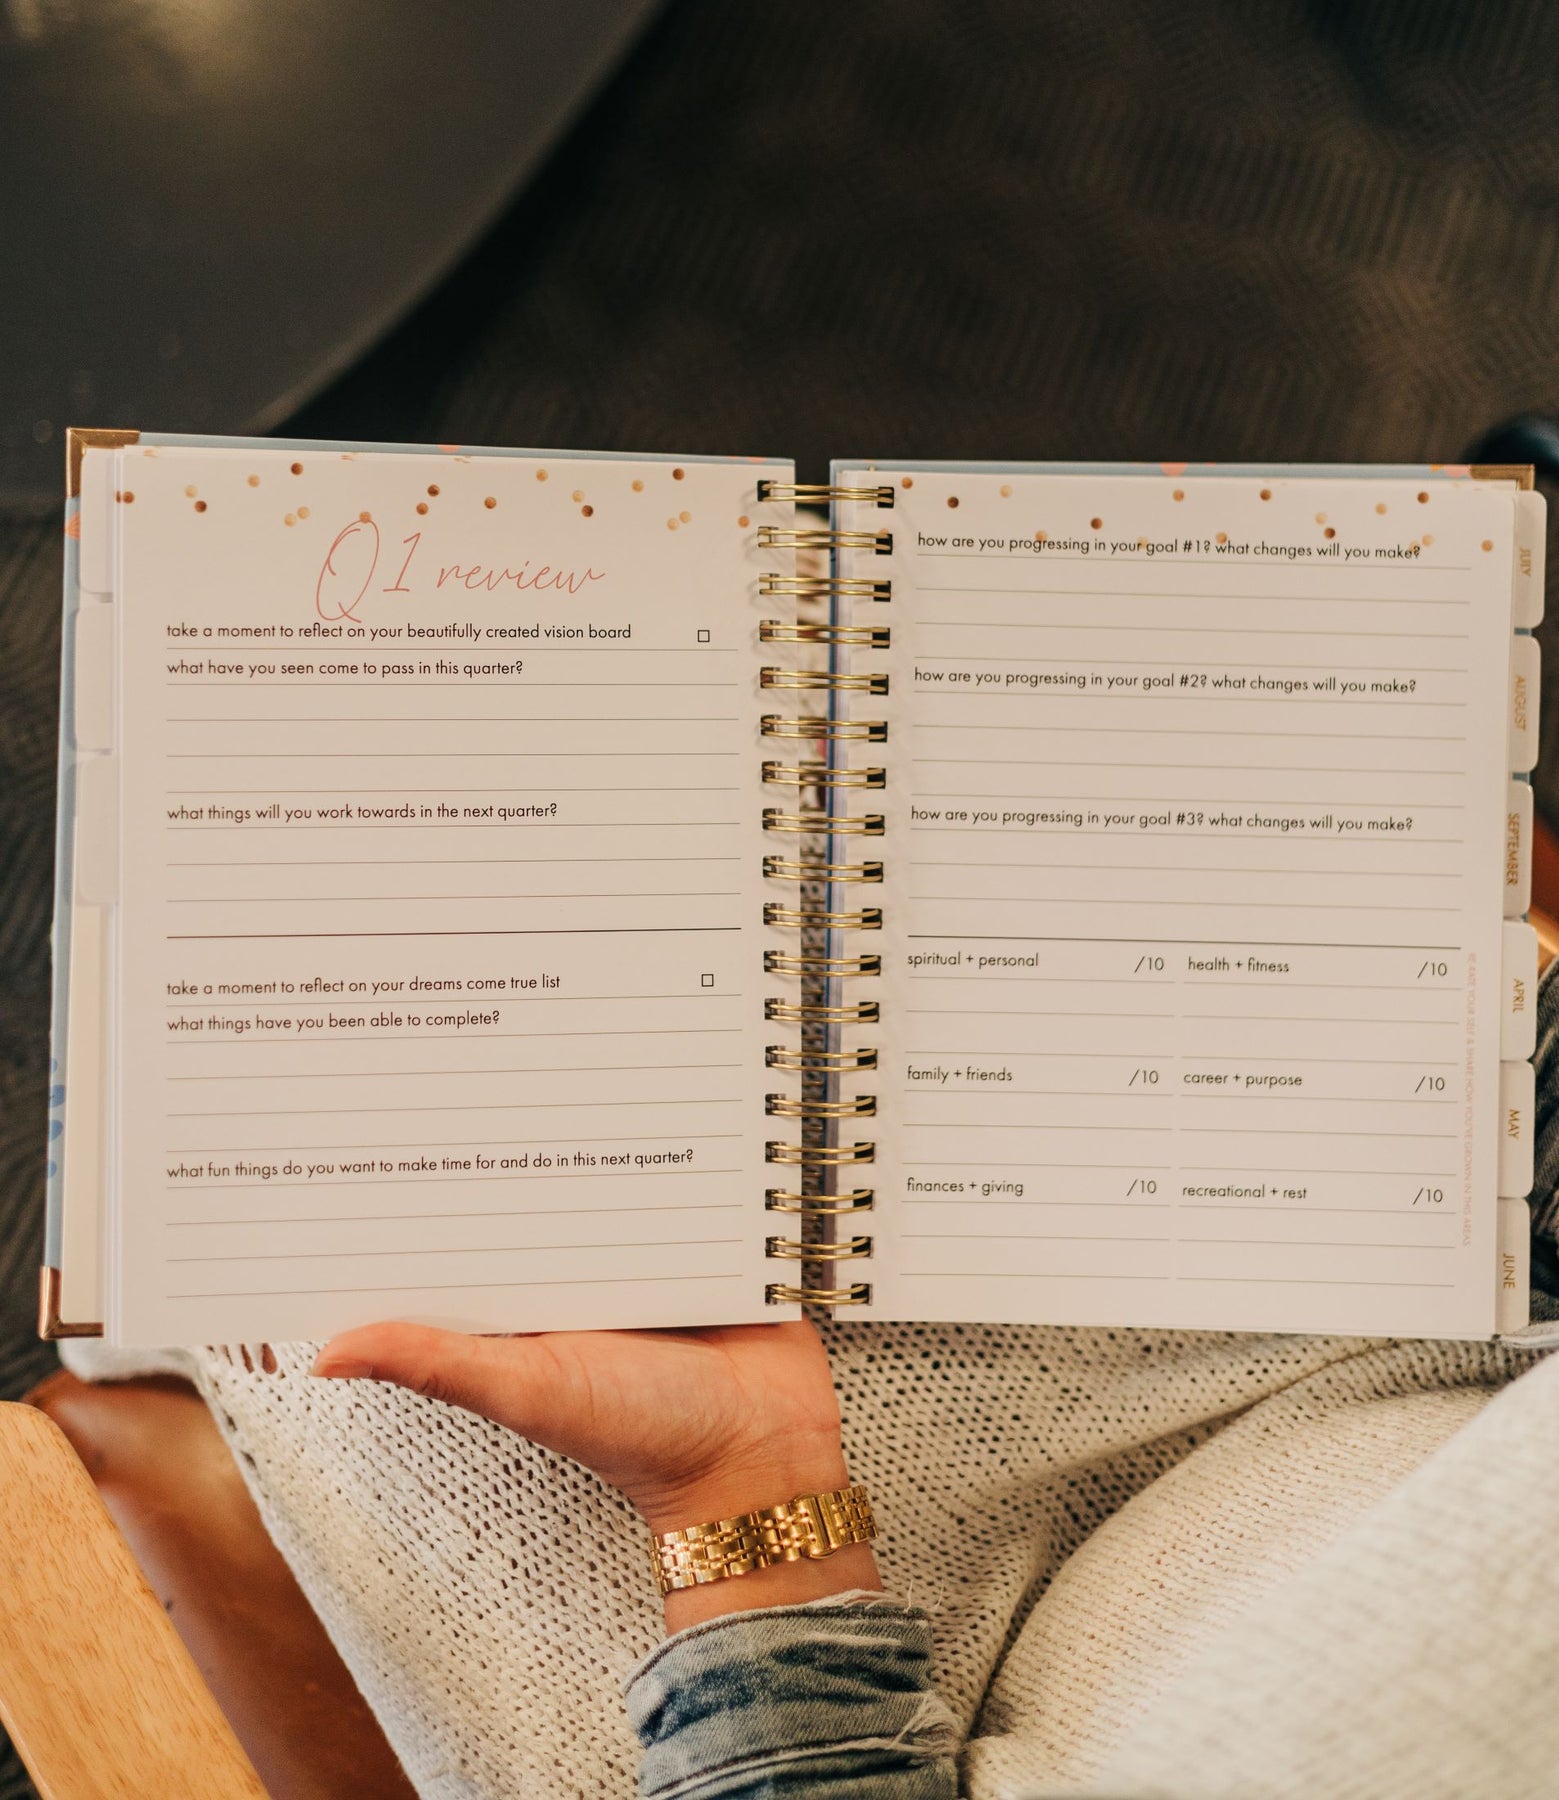 Q1 review
take a moment to reflect on your beautifully created vision board
what have you seen come to pass in this quarter?
what things will you work towards in the next quarter?
take a moment to reflect on your dreams come true list
what things have you been able to complete?
what fun things do you want to make time for and do in this next quarter?
how are you progressing in your goal #1? what changes will you make?
how are you progressing in your goal #2? what changes will you make?
how are you progressing in your goal #3? what changes will you make?
spiritual + personal /10 health + fitness /10
family + friends /10 career + purpose /10
finances + giving /10 recreational + rest /10
RE-RATE YOUR SELF & SHARE HOW YOU'VE GROWN IN THIS AREAS
JULY
AUGUST
SEPTEMBER
APRIL
MAY
JUNE